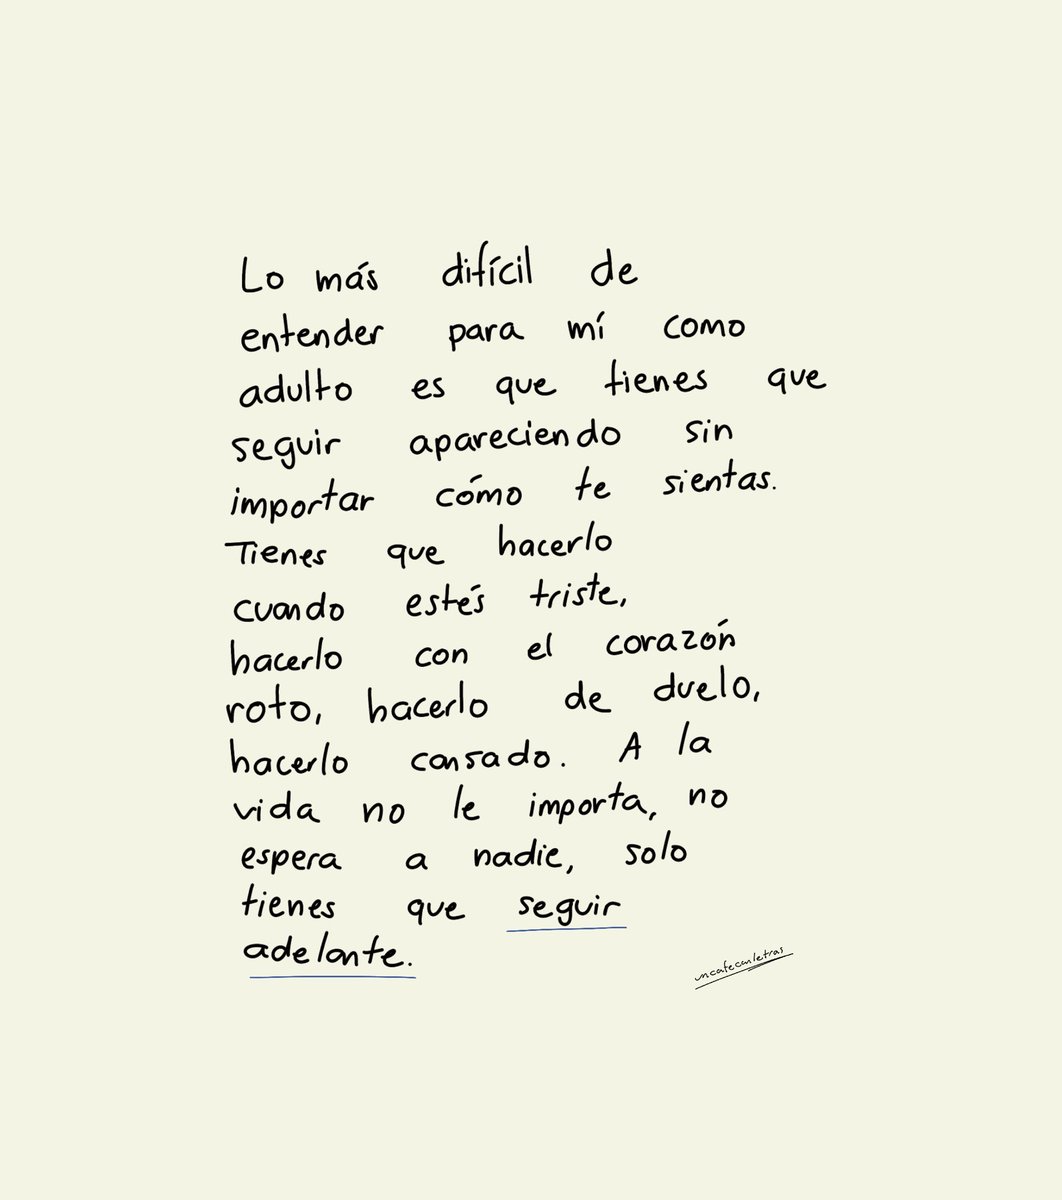 Lo más difícil de
entender para mí como
adulto es que tienes que
seguir apareciendo sin
importar cómo te sientas.
Tienes que hacerlo
cuando estés triste,
hacerlo con el corazón
roto, hacerlo de duelo,
hacerlo cansado. A la
vida no le importa, no
espera a nadie, solo
tienes que seguir
adelante.
uncafeconletras